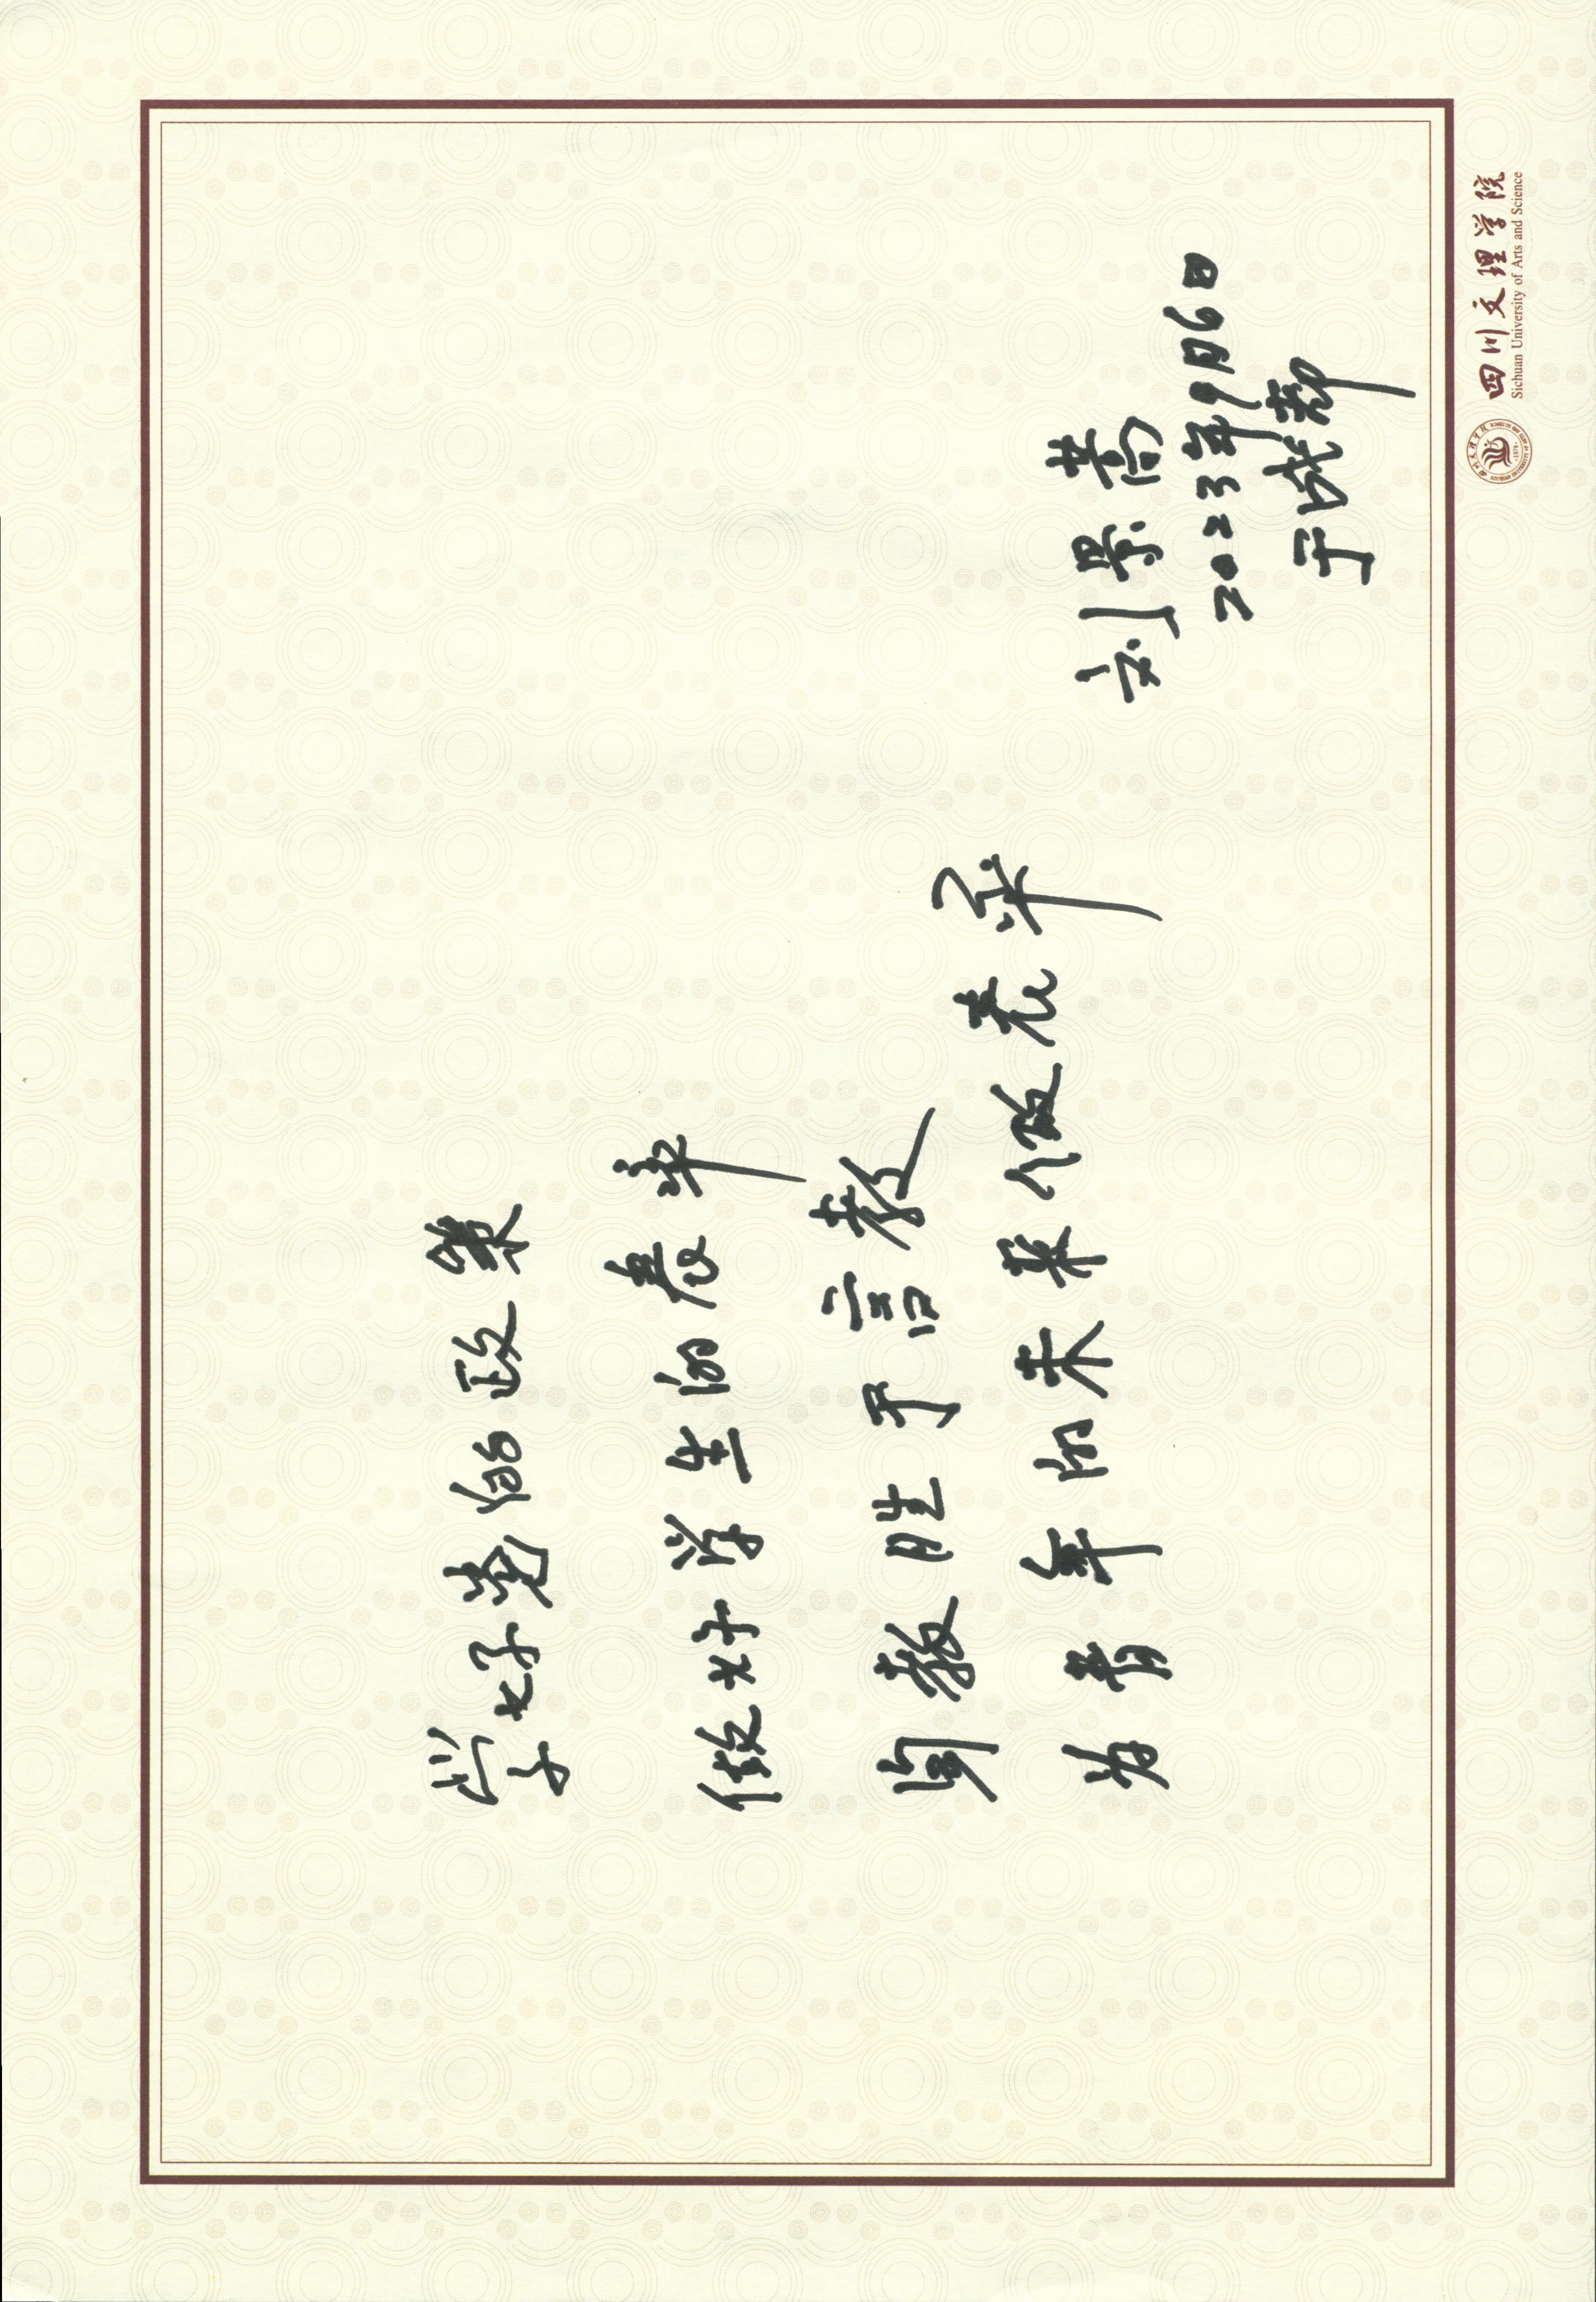 学好党的政策
做好学生的表率
身教胜于言教
为青年的未来做表率
刘景嵩
2023年9月6日
于成都
四川文理学院
Sichuan University of Arts and Science